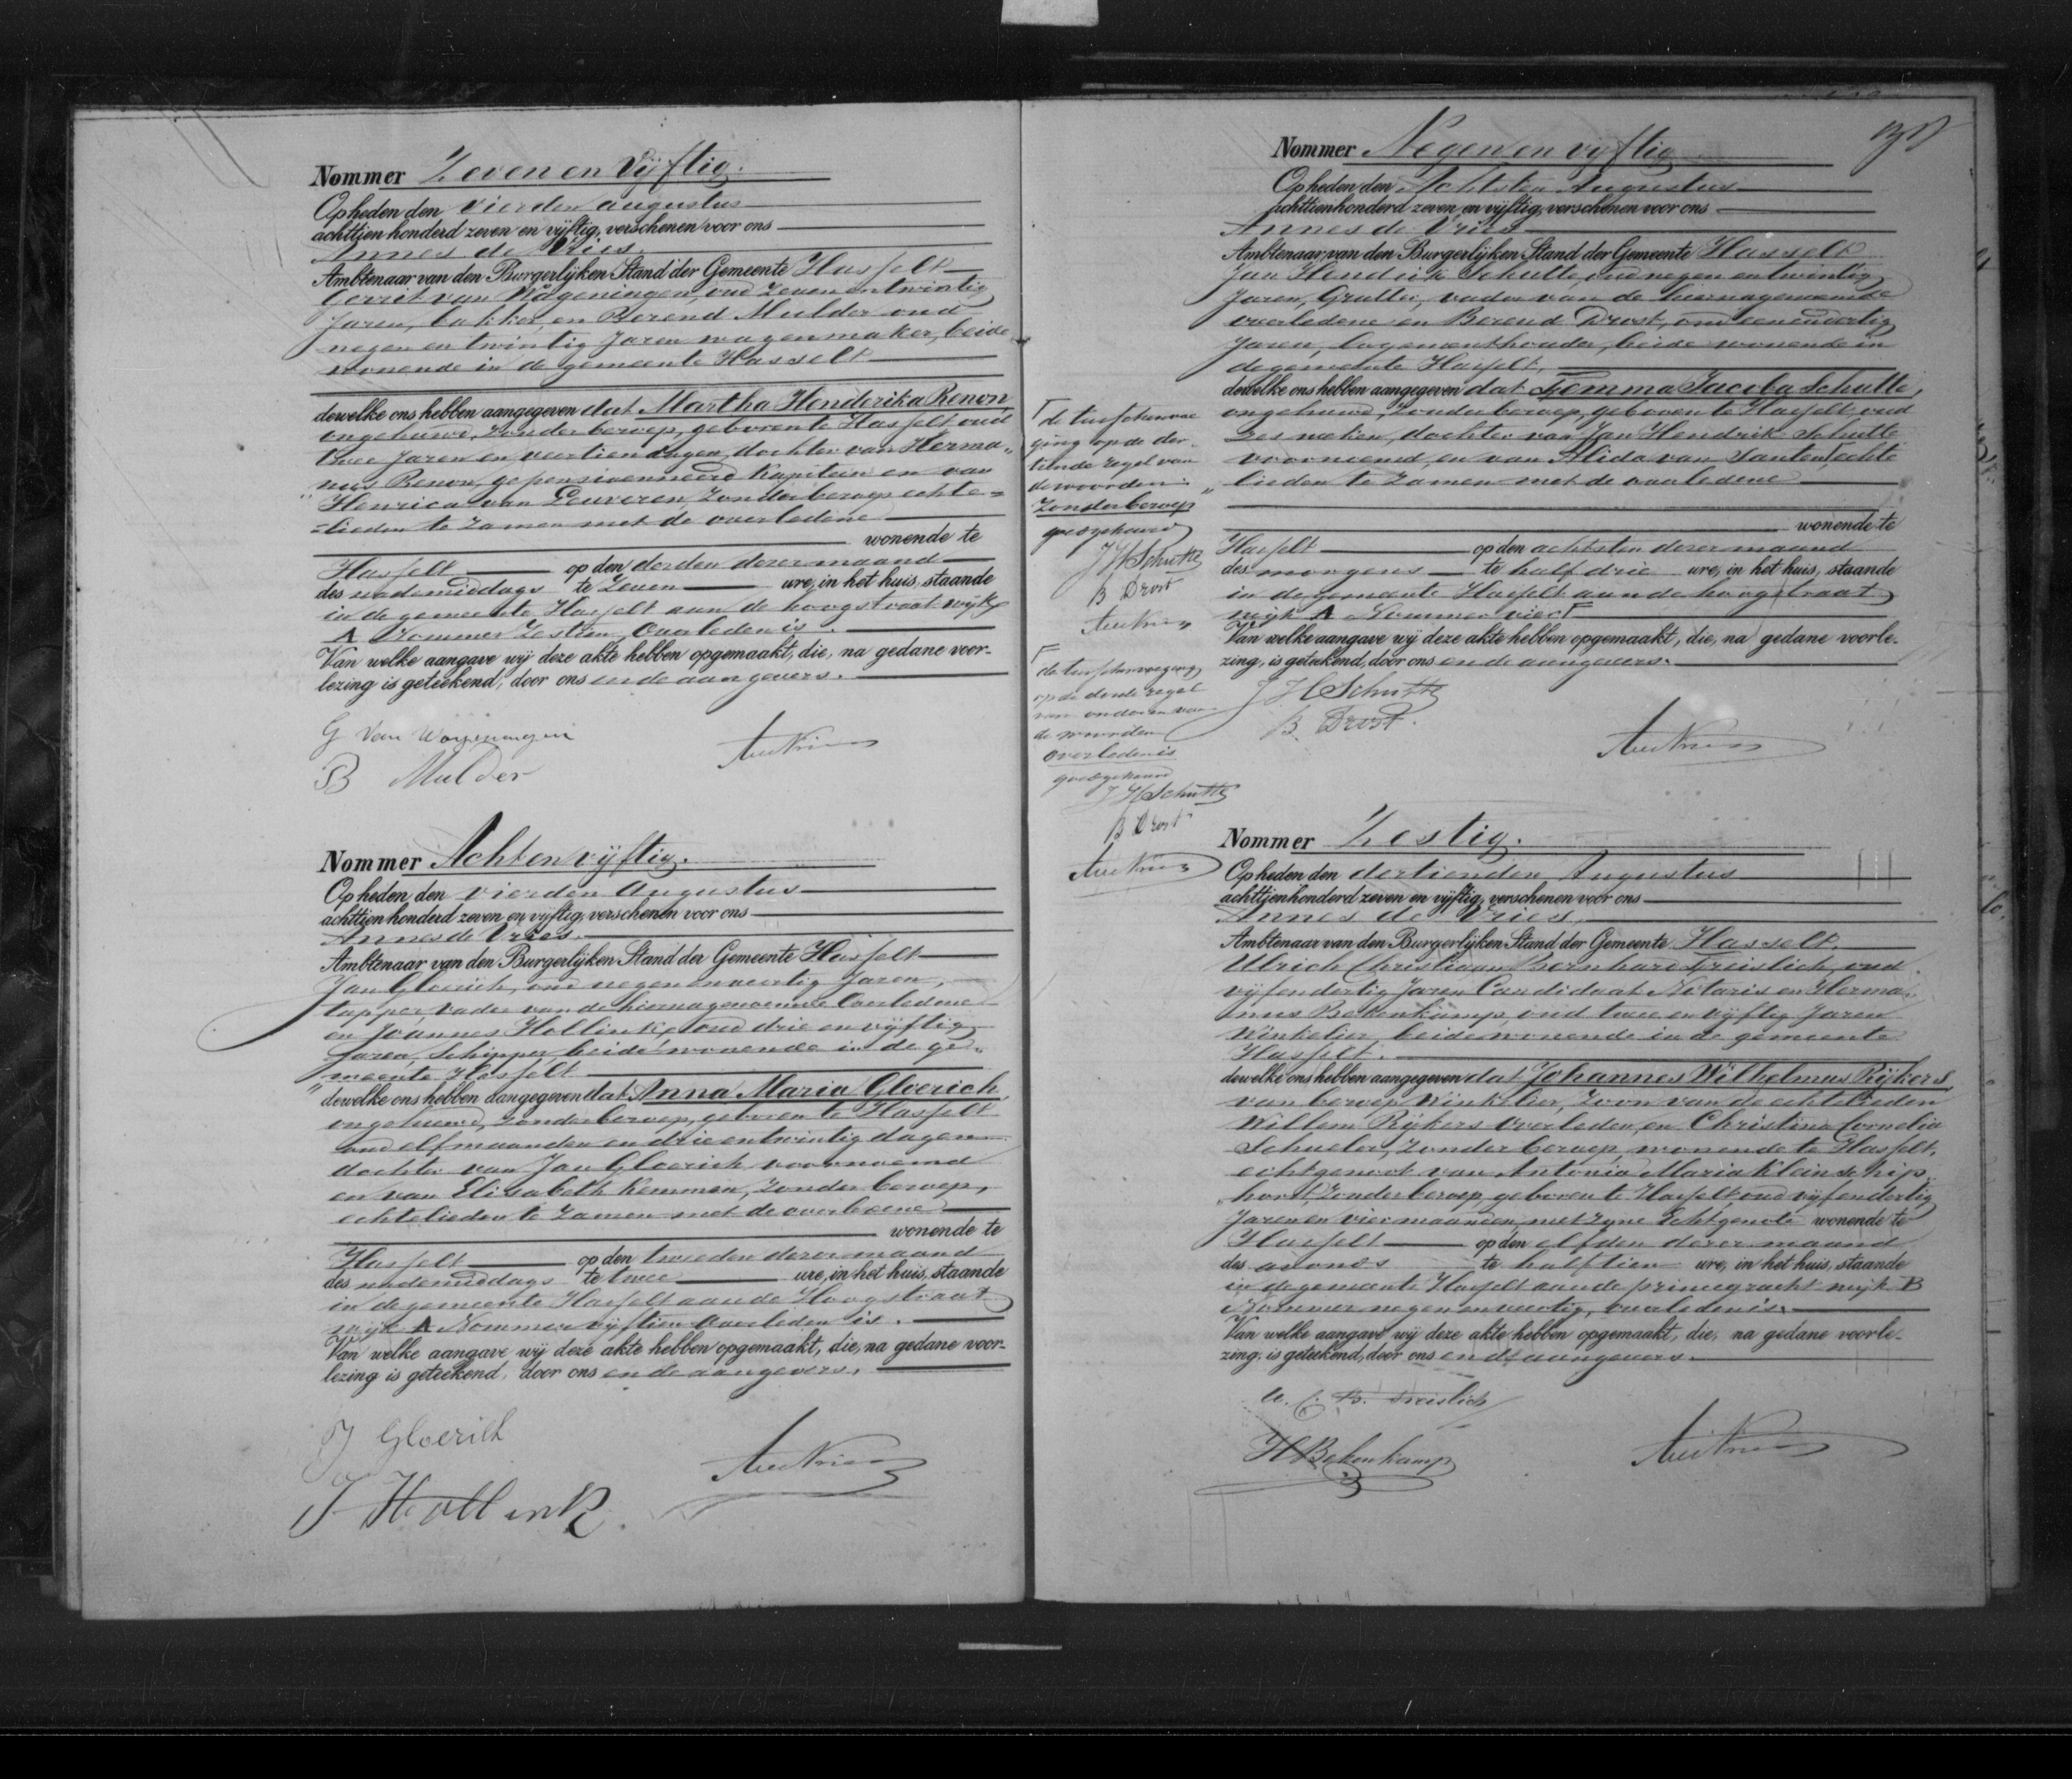 Nommer Zeven en Vijftig.
Op heden den vierden augustus
achttien honderd zeven en vijftig, verschenen voor ons
Annes de Vries
Ambtenaar van den Burgerlijken Stand der Gemeente Hasselt
Gerrit van Wageningen, oud Zeven en twintig
Jaren, bakker, en Berend Mulder oud
negen en twintig Jaren wagenmaker, beide
wonende in de gemeente Hasselt
dewelke ons hebben aangegeven dat Martha Henderika Renon,
ongehuwd, zonder beroep, geboren te Hasselt oud
twee Jaren en veertien dagen, dochter van Herma„
„nus Renon, gepensioneerd Kapitein en van
Henrica van Leuveren, zonder beroep echte=
=lieden te zamen met de overledene
wonende te
Hasselt op den derden dezer maand
des nademiddags te Zeven ure, in het huis, staande
in de gemeente Hasselt aan de hoogstraat wijk
A Nommer Zestien, Overleden is.
Van welke aangave wij deze akte hebben opgemaakt, die, na gedane voor-
lezing is geteekend, door ons en de aangevers.
G Van Wageningen
B Mulder
Nommer Acht en vijftig.
Op heden den vierden Augustus
achttien honderd zeven en vijftig, verschenen voor ons
Annes de Vries.
Ambtenaar van den Burgerlijken Stand der Gemeente Hasselt
Jan Gloerich, oud negen en veertig Jaren,
tapper, vader van de hiernagenoemde Overledene
en Joannes Hollink, oud drie en vijftig
Jaren, Schipper, beide wonende in de ge„
„meente Hasselt
dewelke ons hebben aangegeven dat Anna Maria Gloerich
ongehuwd, zonder beroep, geboren te Hasselt
oud elf maanden en drie en twintig dagen
dochter van Jan Gloerich voornoemd
en van Elisabeth Kemmen, zonder beroep,
echtelieden te zamen met de overledene
wonende te
Hasselt op den tweeden dezer maand
des nademiddags te twee ure, in het huis, staande
in de gemeente Hasselt aan de Hoogstraat
wijk A Nommer vijftien Overleden is.
Van welke aangave wij deze akte hebben opgemaakt, die, na gedane voor-
lezing is geteekend, door ons en de aangevers.
J Gloerich
J Hollink
de tusschenvoe
ging op de der„
tiende regel van
de woorden:
Zonder beroep
goedgekeurd
J H Schutte
B Drost
de tusschenvoeging
op de derde regel
van onderen van
de woorden
overleden is
goedgekeurd
J H Schutte
B Drost
Nommer Negen en vijftig
Op heden den Achtsten Augustus
achttienhonderd zeven en vijftig, verschenen voor ons
Annes de Vries
Ambtenaar van den Burgerlijken Stand der Gemeente Hasselt
Jan Hendrik Schutte, oud negen en twintig
Jaren, Grutter, vader van de hiernagenoemde
overledene en Berend Drost, oud een en veertig
Jaren, logementhouder, beide wonende in
de gemeente Hasselt,
dewelke ons hebben aangegeven dat Gemma Jacoba Schutte,
ongehuwd, zonder beroep, geboren te Hasselt, oud
zes weken, dochter van Jan Hendrik Schutte
voornoemd, en van Alida van Santen, echte
„lieden te zamen met de overledene
wonende te
Hasselt op den achtsten dezer maand
des morgens te half drie ure, in het huis, staande
in de gemeente Hasselt aan de hoogstraat
wijk A Nommer vier
Van welke aangave wij deze akte hebben opgemaakt, die, na gedane voorle-
zing, is geteekend, door ons en de aangevers.
J H Schutte
B. Drost.
Nommer Zestig.
Op heden den dertienden Augustus
achttienhonderd zeven en vijftig, verschenen voor ons
Annes de Vries.
Ambtenaar van den Burgerlijken Stand der Gemeente Hasselt.
Ulrich Christiaan Bernhard Greislich, oud
vijfendertig Jaren Candidaat Notaris en Herma„
nus Bekenkamp, oud twee en vijftig Jaren
Winkelier beide wonende in de gemeente
Hasselt.
dewelke ons hebben aangegeven dat Johannes Wilhelmus Rijkers
van beroep Winkelier, Zoon van de echtelieden
Willem Rijkers overleden, en Christina Cornelia
Schueler, zonder beroep, wonende te Hasselt,
echtgenoot van Antonia Maria Kleinschip„
„horst, zonder beroep, geboren te Hasselt oud vijfendertig
Jaren en vier maanden, met zyne Echtgenote wonende te
Hasselt op den elfden dezer maand
des avonds te half tien ure, in het huis, staande
in de gemeente Hasselt aan de princegracht wijk B
Nommer negen en veertig, overleden is.
Van welke aangave wij deze akte hebben opgemaakt, die, na gedane voorle-
zing, is geteekend, door ons en de aangevers.
U. C. B. Greislich
H Bekenkamp